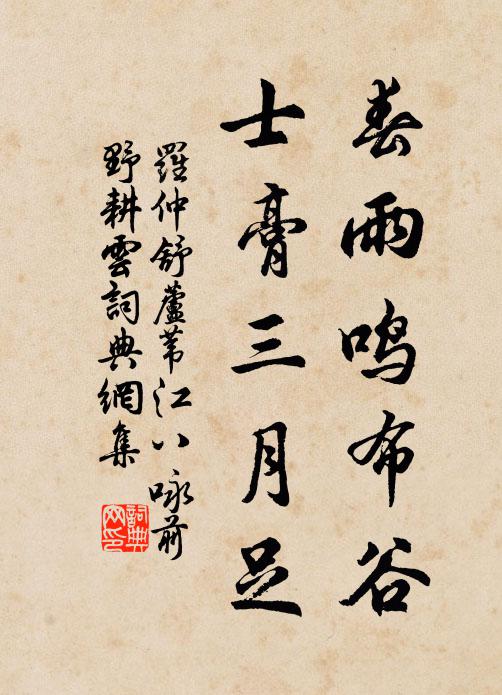 春雨鸣布谷
士膏三月足
羅仲舒蘆葦江八咏前
野耕雲詞典網集
詞典
网印